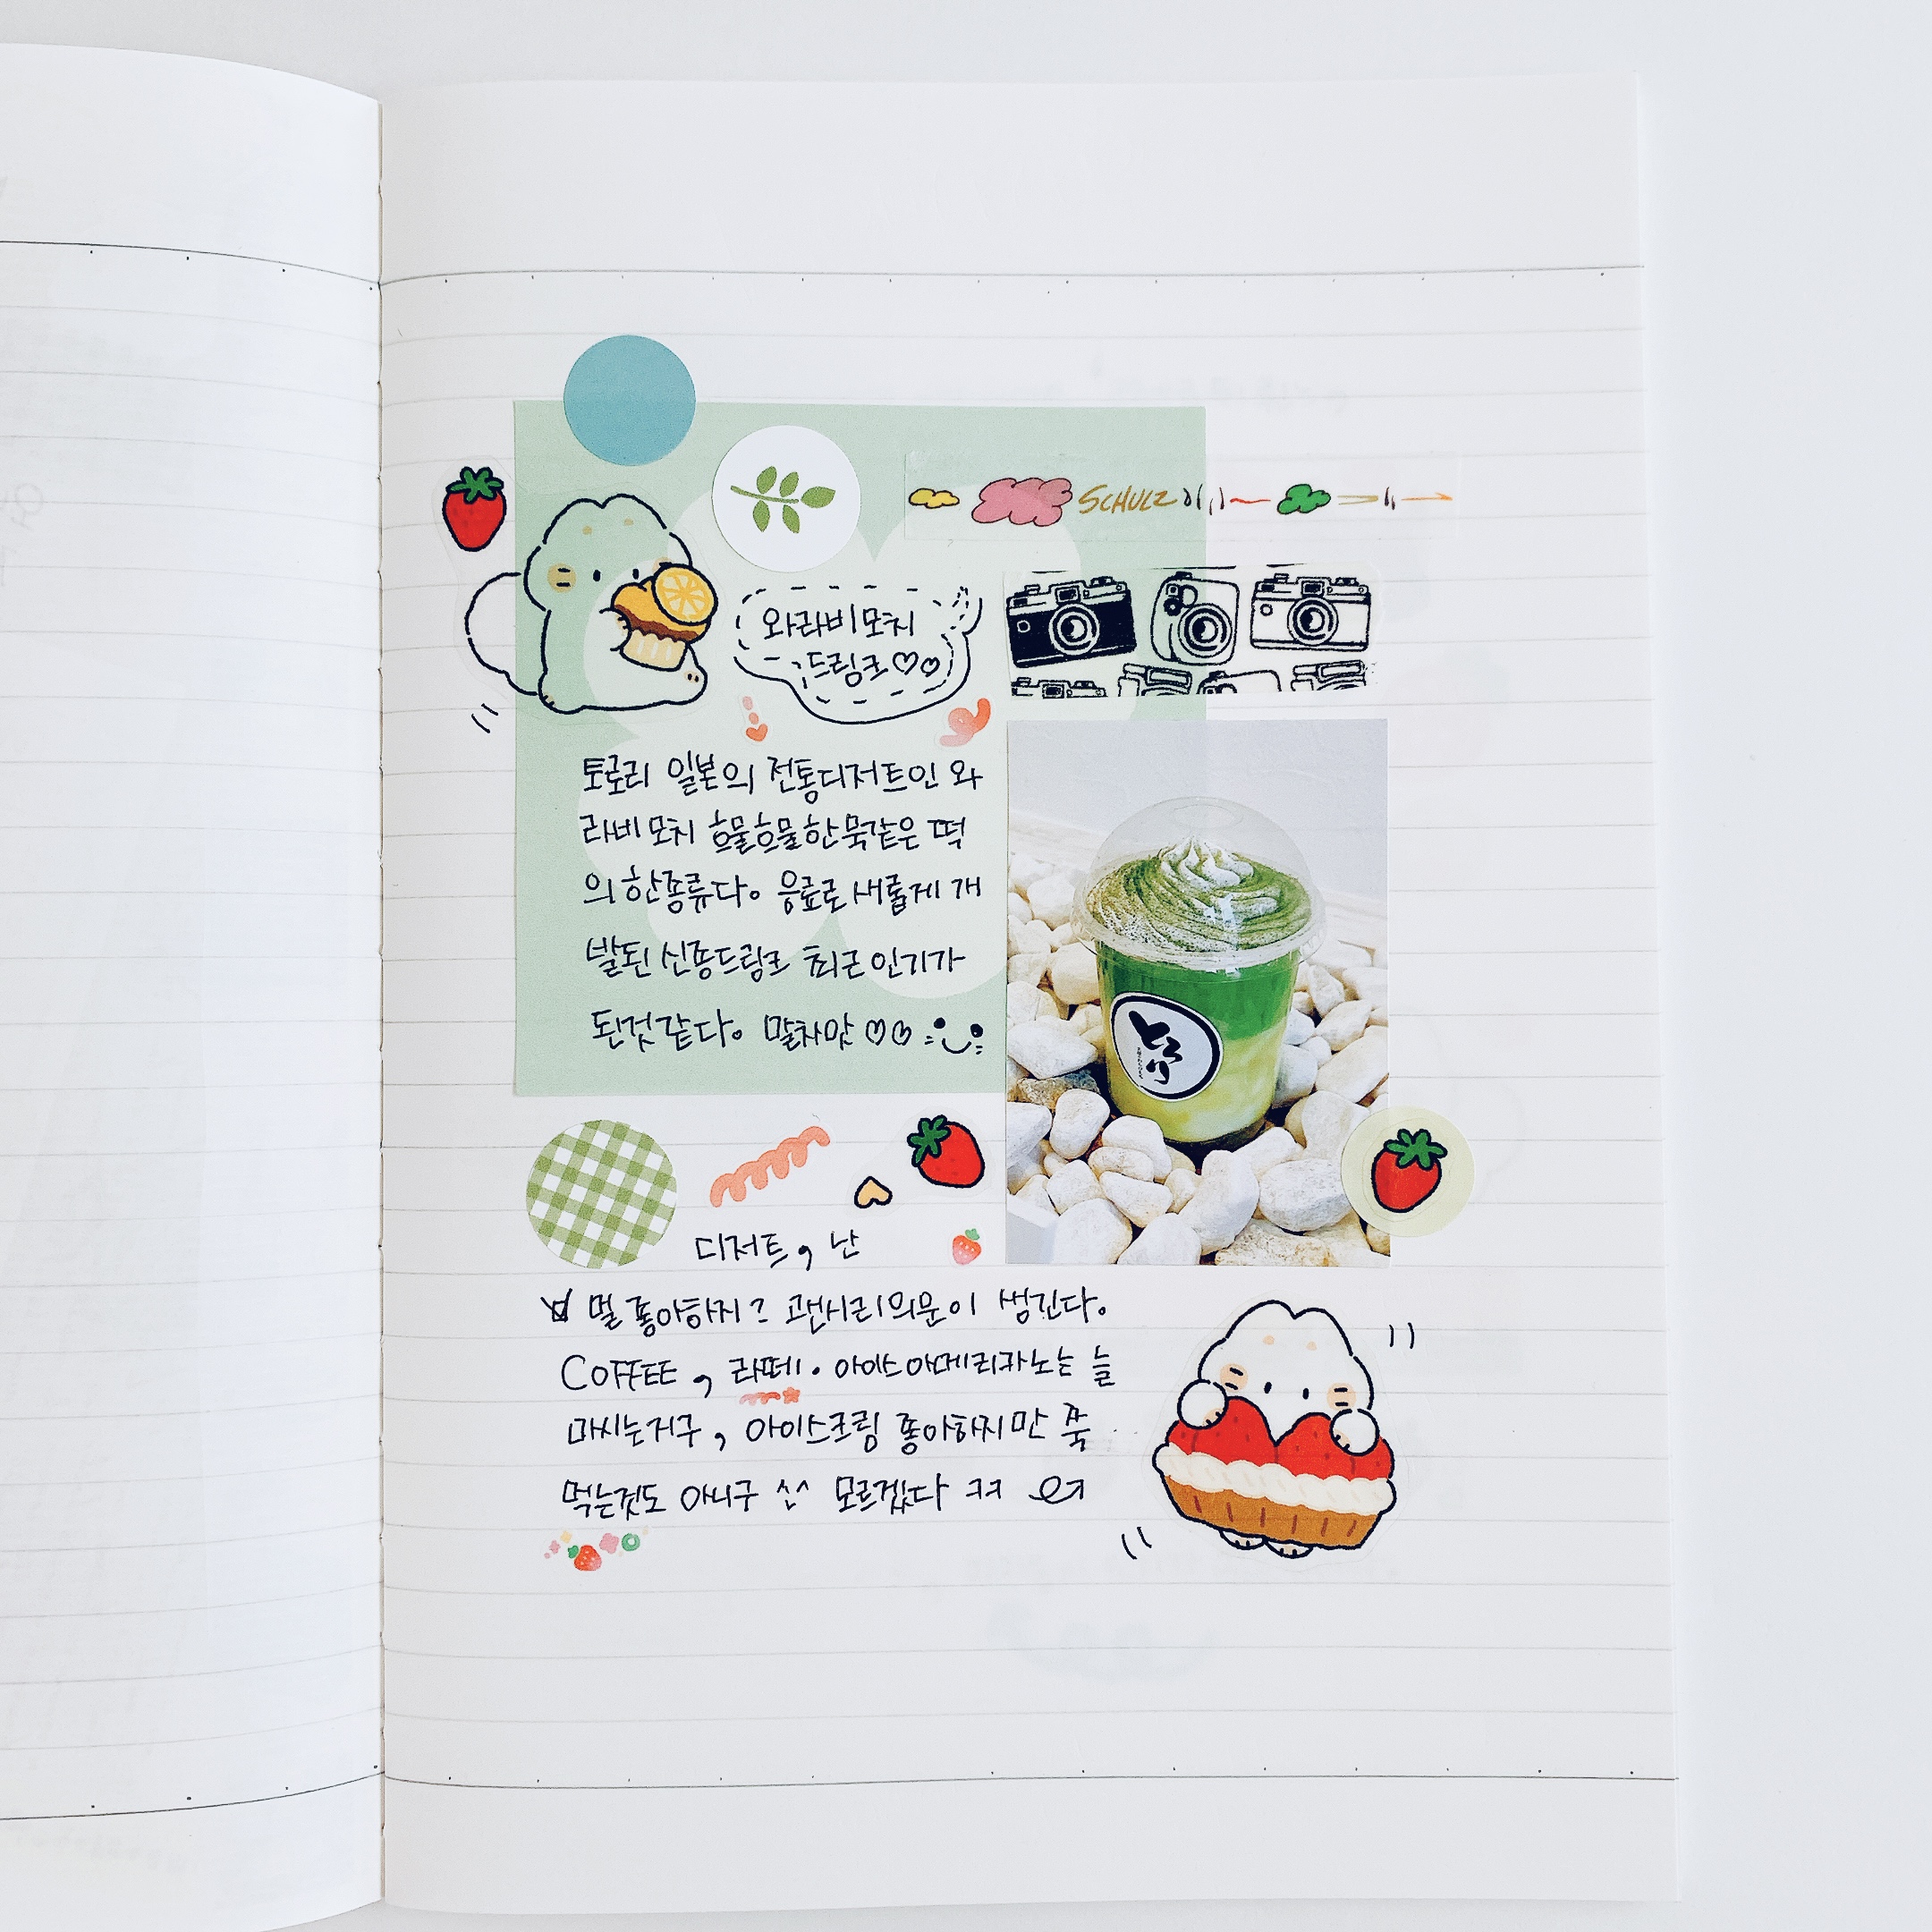 SCHULZ
와라비모찌
드링크♡♡
토로리 일본의 전통디저트인 와
라비모찌 흐물흐물한묵같은 떡
의 한종류다。 음료로 새롭게 개
발된 신종드링크 최근 인기가
된것같다。 말차맛 ♡♡
とろり
디저트, 난
멀 좋아하지? 괜시리의문이 생긴다。
COFFEE, 라떼. 아이스아메리카노는 늘
마시는거구, 아이스크림 좋아하지만 쭉
먹는것도 아니구 ^^ 모르겠다 ㅋㅋ